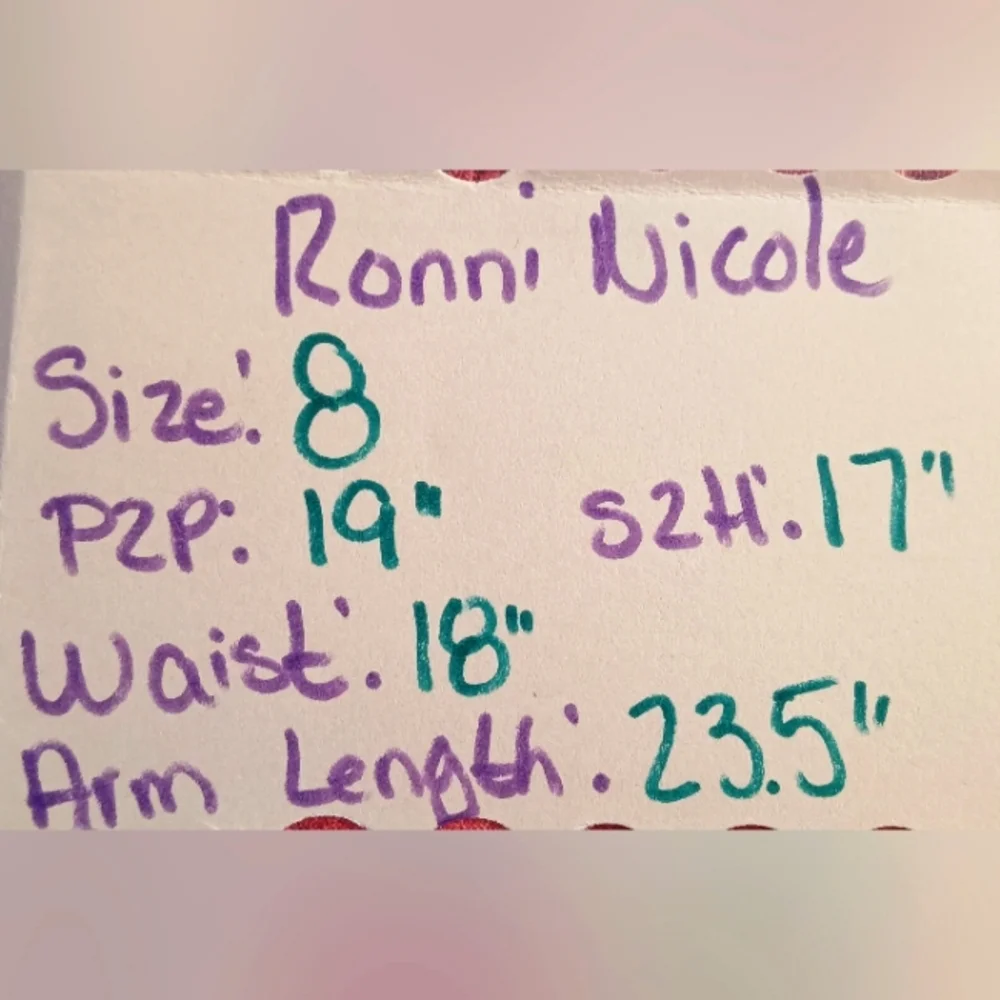 Ronni Nicole
Size: 8
P2P: 19" S2H: 17"
Waist: 18"
Arm Length: 23.5"